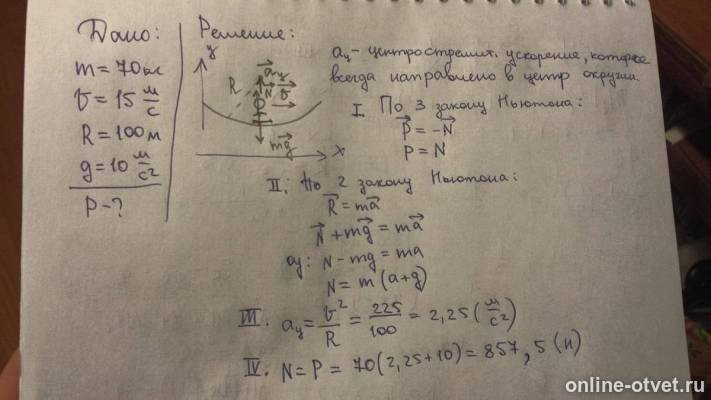 Дано:
m = 70 кг
v = 15 м/с
R = 100 м
g = 10 м/с²
P - ?
Решение:
y
a⃗ц
R
N⃗
v⃗
mg⃗
x
aц - центростремит. ускорение, которое
всегда направлено в центр окружн.
I. По 3 закону Ньютона:
P⃗ = -N⃗
P = N
II. По 2 закону Ньютона:
R⃗ = ma⃗
N⃗ + mg⃗ = ma⃗
oy: N - mg = ma
N = m(a+g)
III. aц = v²/R = 225/100 = 2,25 (м/с²)
IV. N = P = 70(2,25+10) = 857,5 (Н)
online-otvet.ru